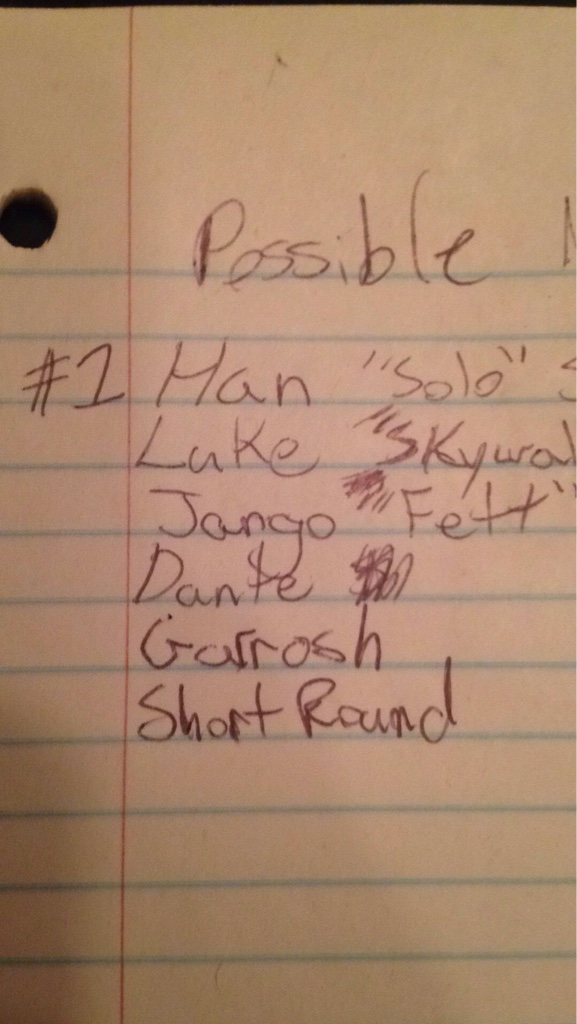 Possible
#1 Han "Solo" S
Luke "Skywal
Jango "Fett"
Dante
Garrosh
Short Round